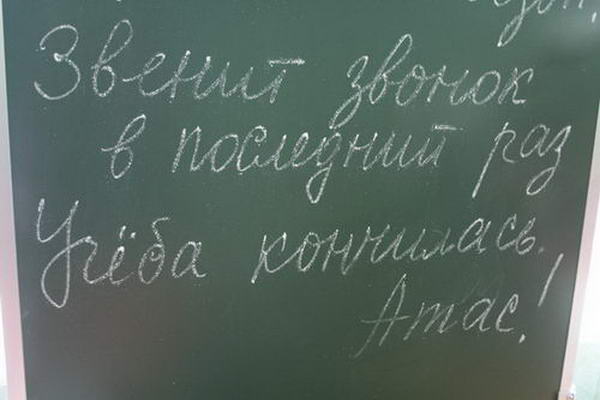 Звенит звонок
в последний раз
Учёба кончилась.
Атас!